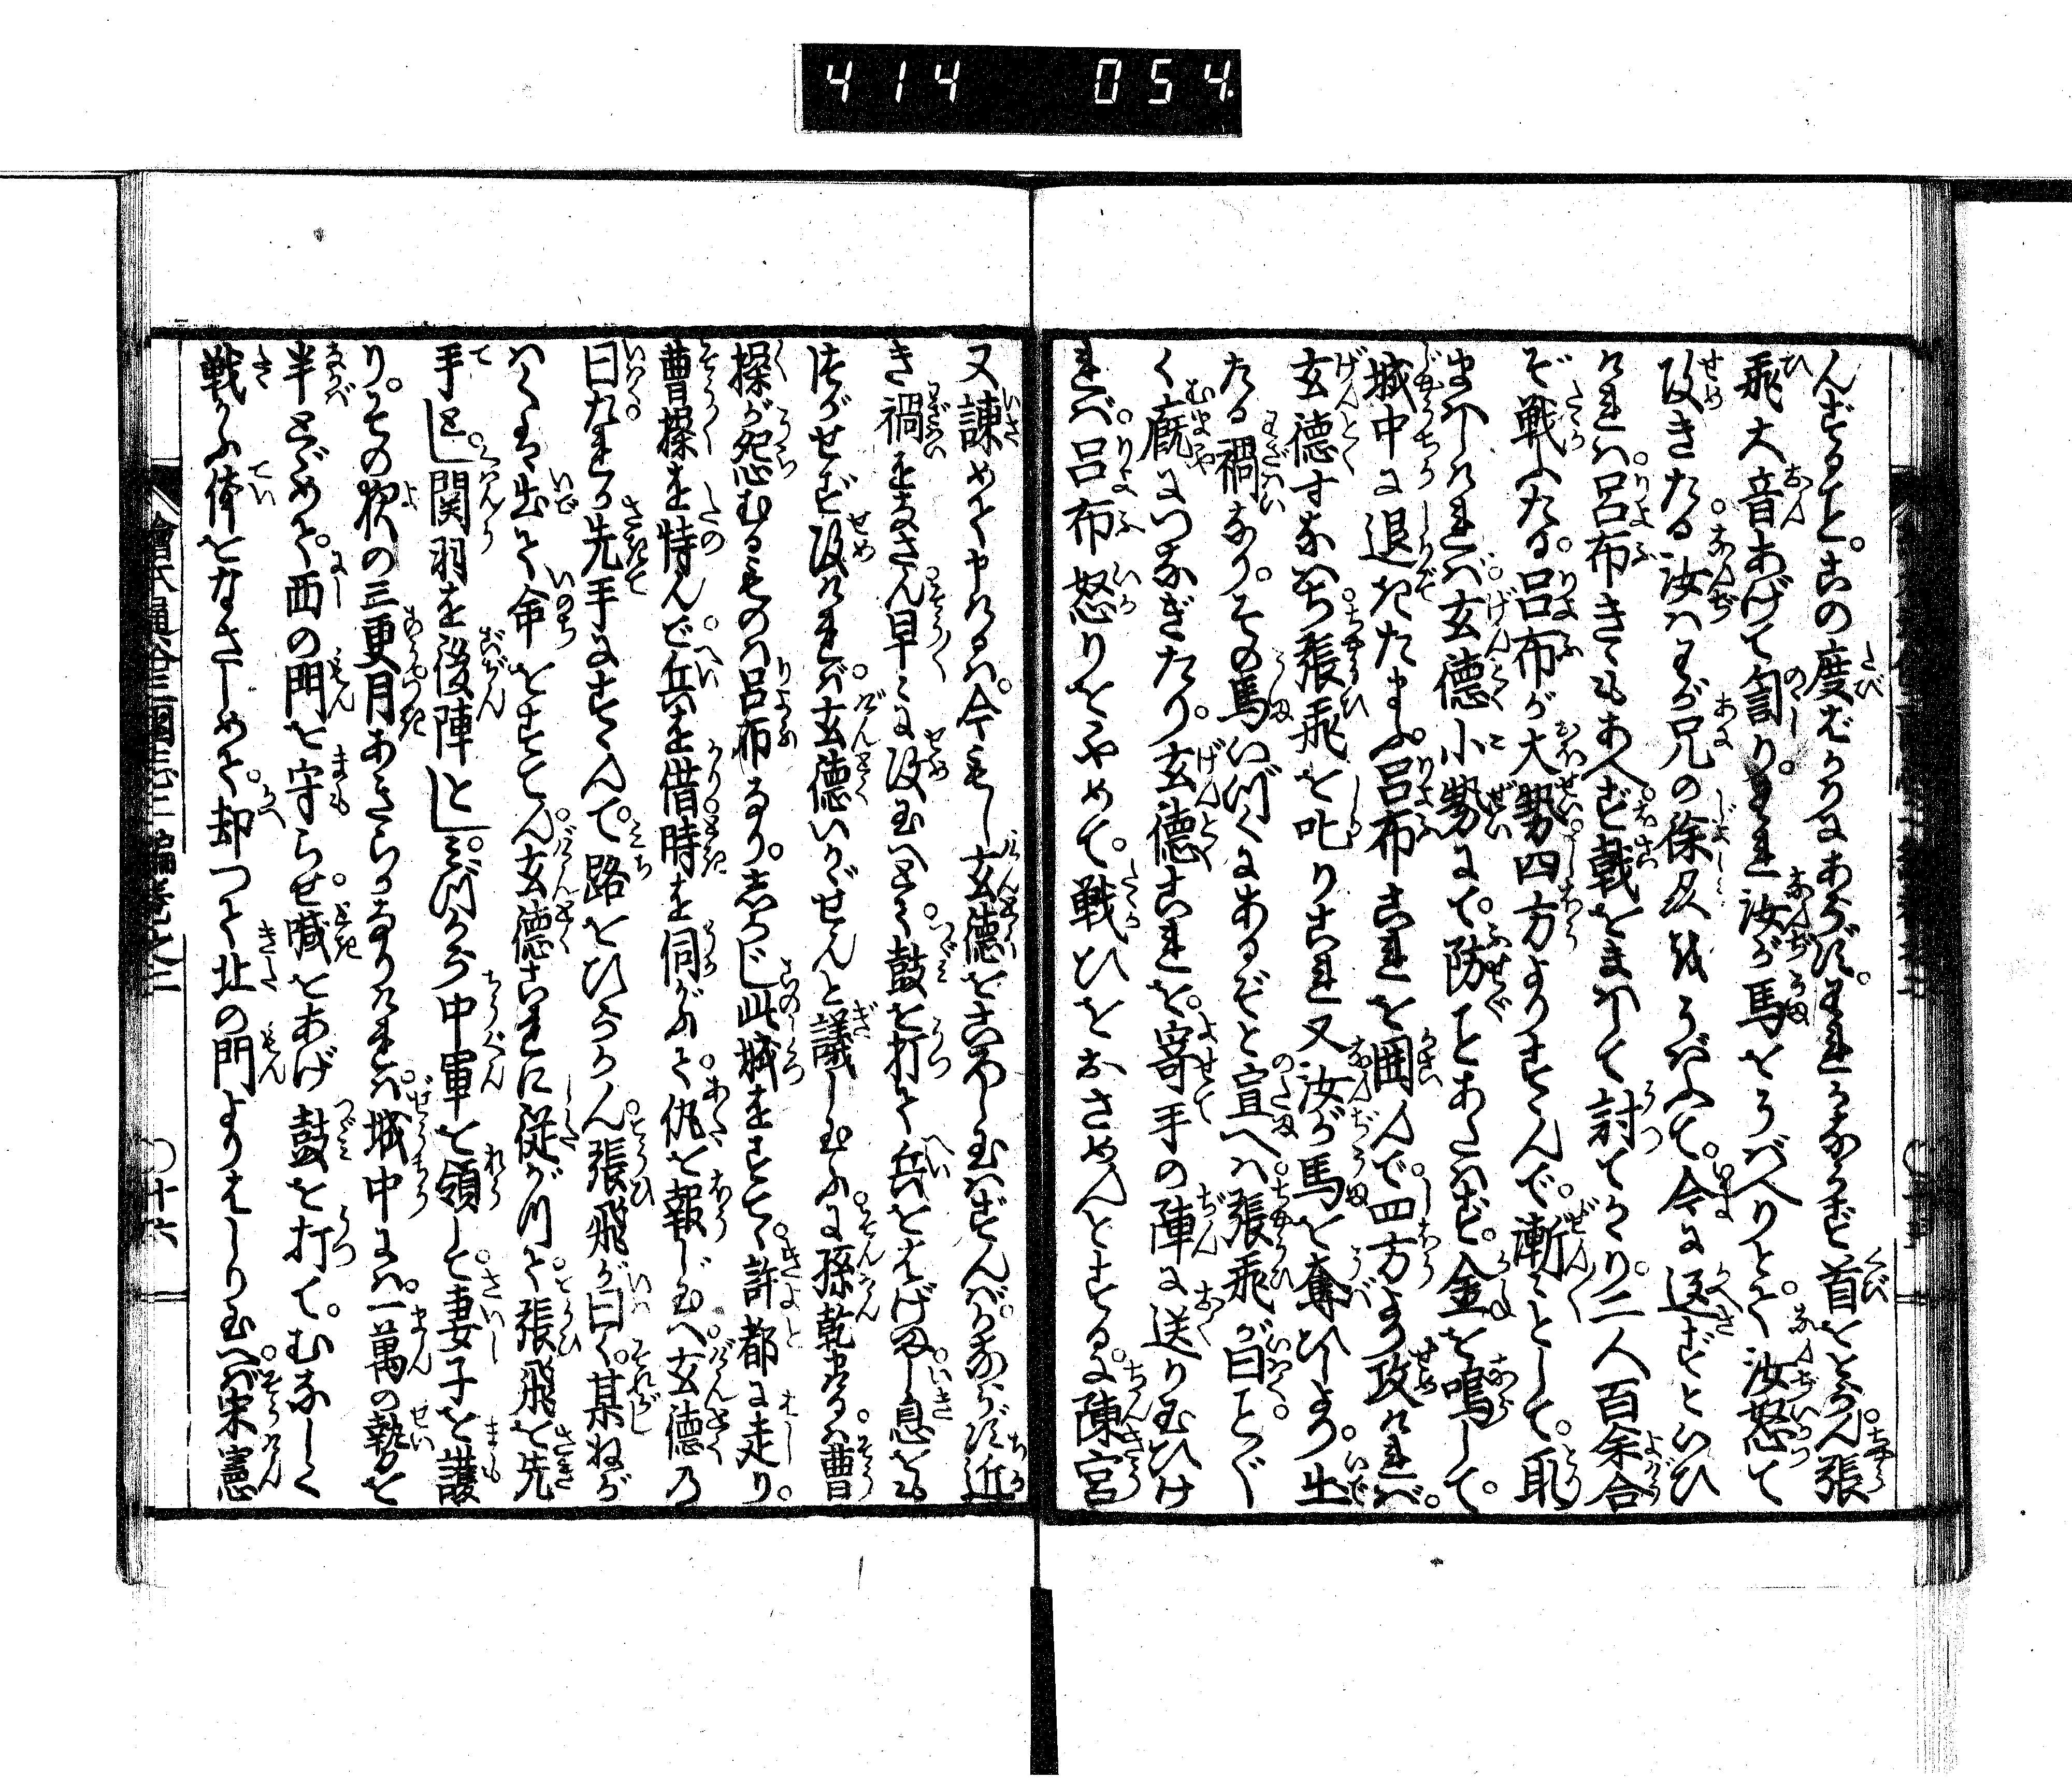 414 054
んずると。この度ばかりにあらず。われかならず首をとらん張
飛大音あげて訇り。われ汝が馬をうばへりとて。汝怒て
攻きたる汝はわが兄の徐州をうばふて。今に返ずといひ
ければ呂布きこもあへず戟をまはして討てかゝり二人百余合
ぞ戦へたる。呂布が大勢四方よりすゝんで漸々として。取
まはしければ玄徳小勢にて。防ことあたはず。金を鳴して。
城中に退きたまふ。呂布これを囲んで四方より攻ければ。
玄徳すなはち張飛を叱りこれ又汝が馬を奪ひしより。出
たる禍なり。その馬いづくにあるぞと宣へば張飛が曰ことごと
く廐につなぎたり。玄徳これを。寄手の陣に送り玉ひけ
れば。呂布怒りをやめて。戦ひをおさめんとするに。陳宮
又諫めて申けるは。今もし玄徳をころし玉はずんば。かならず近
き禍をなさん早々に攻玉へとて。鼓を打て兵をまげ出し。息をも
つがせず攻ければ。玄徳いかゞせんと議し玉ふに孫乾申けるは曹
操が怨むるものは呂布なり。しかじ此城をすてゝ許都に走り。
曹操を恃んで兵を借時を伺がふて。仇を報じ玉へ。玄徳乃
曰たれか先手にすゝんで。路をひらかん。張飛が曰く。某ねが
はくは出て命をすてん。玄徳これに従がつて。張飛を先
手とし。関羽を後陣とし。みづから中軍を領して。妻子を護
り。その夜の三更月あきらかなりければ。城中には。一萬の勢を
半とゞめて。西の門を守らせ。喊をあげ鼓を打て。むなしく
戦かふ体をなさしめて。却つて北の門よりはしり玉へば宋憲
繪本通俗三國志二編巻之二
〇十六